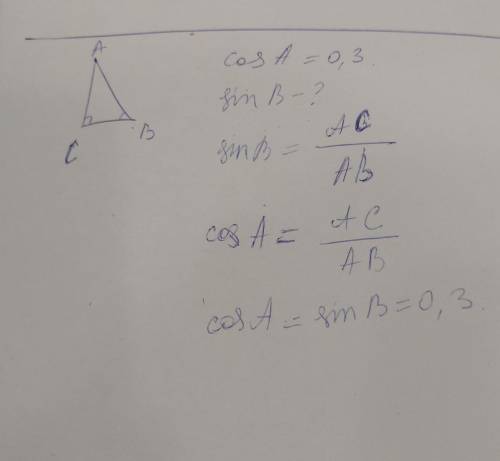 A
C
B
cos A = 0,3.
sin B - ?
sin B = AC / AB
cos A = AC / AB
cos A = sin B = 0,3.